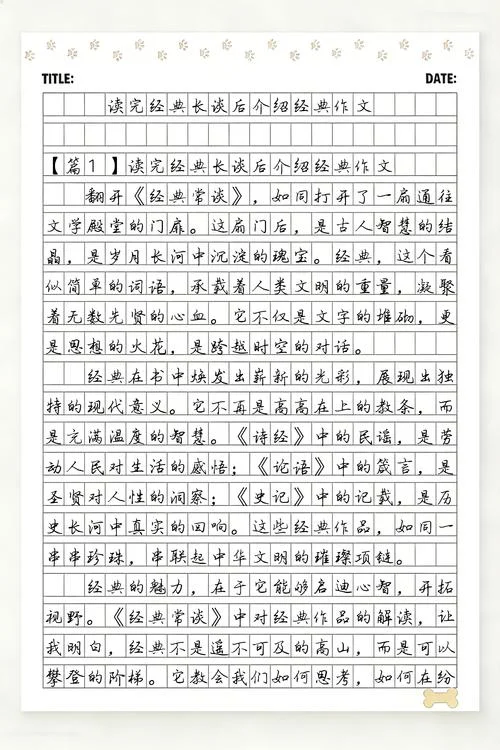 TITLE: DATE:
读完经典长谈后介绍经典作文
【篇1】读完经典长谈后介绍经典作文
翻开《经典常谈》，如同打开了一扇通往
文学殿堂的门扉。这扇门后，是古人智慧的结
晶，是岁月长河中沉淀的瑰宝。经典，这个看
似简单的词语，承载着人类文明的重量，凝聚
着无数先贤的心血。它不仅是文字的堆砌，更
是思想的火花，是跨越时空的对话。
经典在书中焕发出崭新的光彩，展现出独
特的现代意义。它不再是高高在上的教条，而
是充满温度的智慧。《诗经》中的民谣，是劳
动人民对生活的感悟；《论语》中的箴言，是
圣贤对人性的洞察；《史记》中的记载，是历
史长河中真实的回响。这些经典作品，如同一
串串珍珠，串联起中华文明的璀璨项链。
经典的魅力，在于它能够启迪心智，开拓
视野。《经典常谈》中对经典作品的解读，让
我明白，经典不是遥不可及的高山，而是可以
攀登的阶梯。它教会我们如何思考，如何在纷